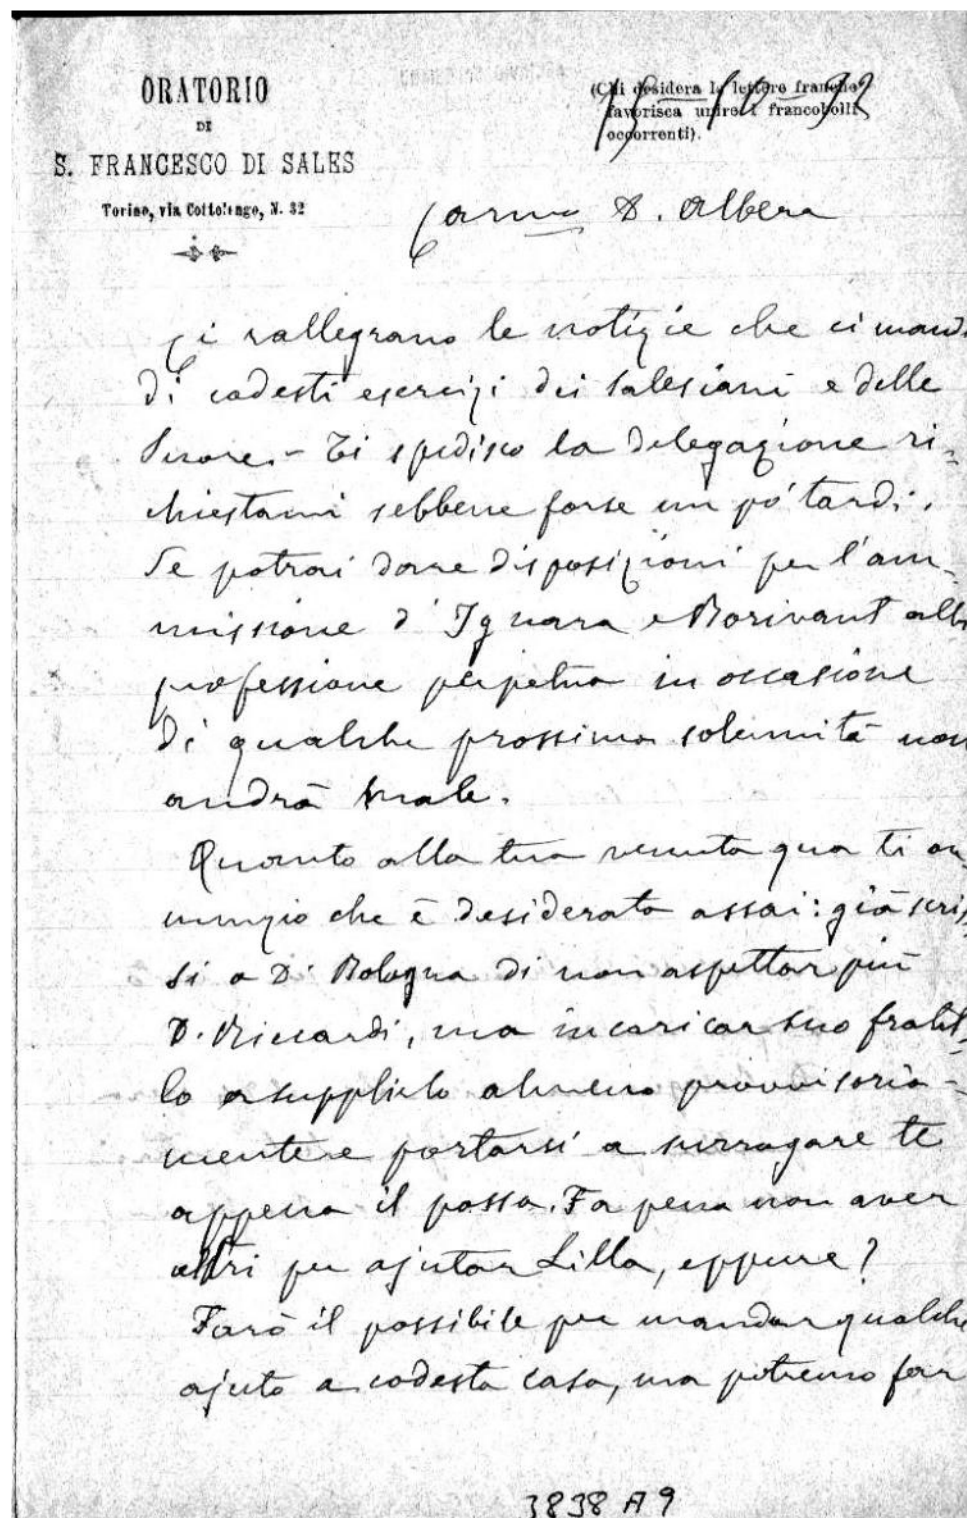 ORATORIO
DI
S. FRANCESCO DI SALES
Torino, via Cottolengo, N. 32
(Chi desidera le lettere franche
favorisca unire i francobolli
occorrenti).
Car.mo D. Albera
Ci rallegrano le notizie che ci mandi
di codesti esercizi dei Salesiani e delle
Suore. - Ti spedisco la delegazione ri-
chiestami sebbene forse un pò tardi.
Se potrai dare disposizioni per l'am-
missione d' Ignara e Morivant alla
professione perpetua in occasione
di qualche prossima solennità non
andrà male.
Quanto alla tua venuta qua ti an-
nunzio che è desiderata assai: già scris-
si a D. Bologna di non aspettar più
D. Riccardi, ma incaricar suo fratel-
lo a supplirlo almeno provvisoria-
mente e portarsi a surrogare te
appena il possa. Fa pena non aver
altri per ajutar Lilla, eppure?
Farò il possibile per mandar qualche
ajuto a codesta casa, ma potremo far
3838 A 9